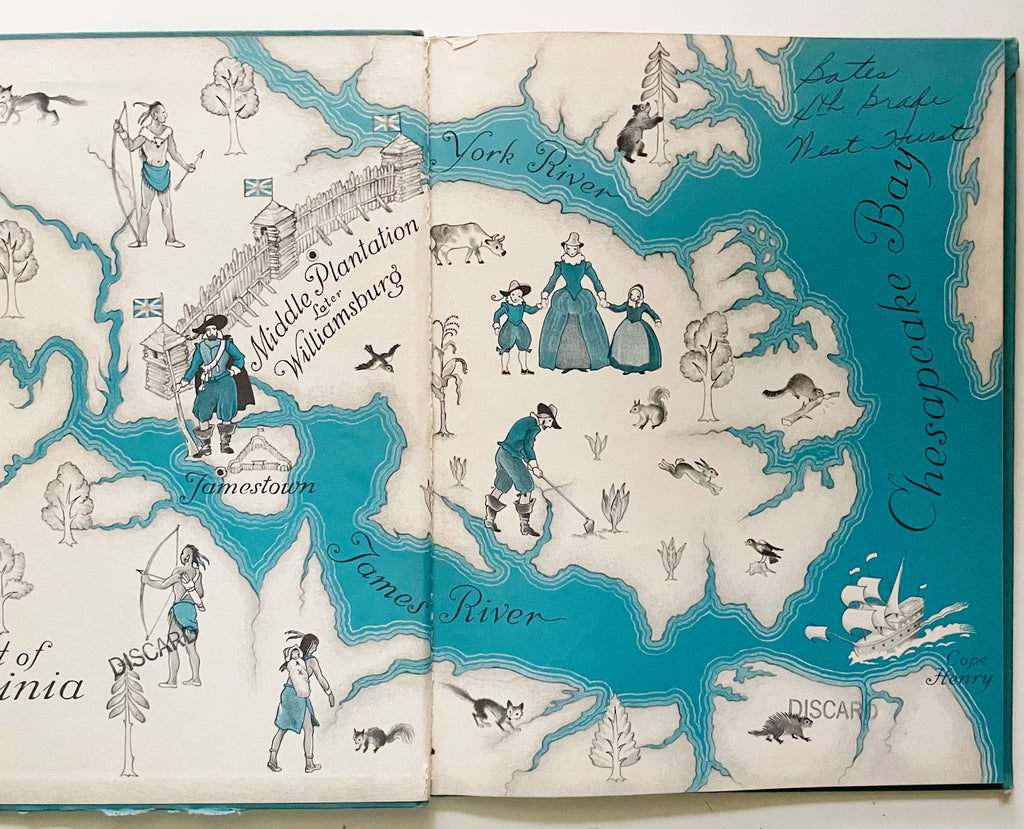 Bates
5th Grade
West Hurst
York River
Chesapeake Bay
Middle Plantation
Later
Williamsburg
Jamestown
James River
t of
inia
DISCARD
Cape
Henry
DISCARD